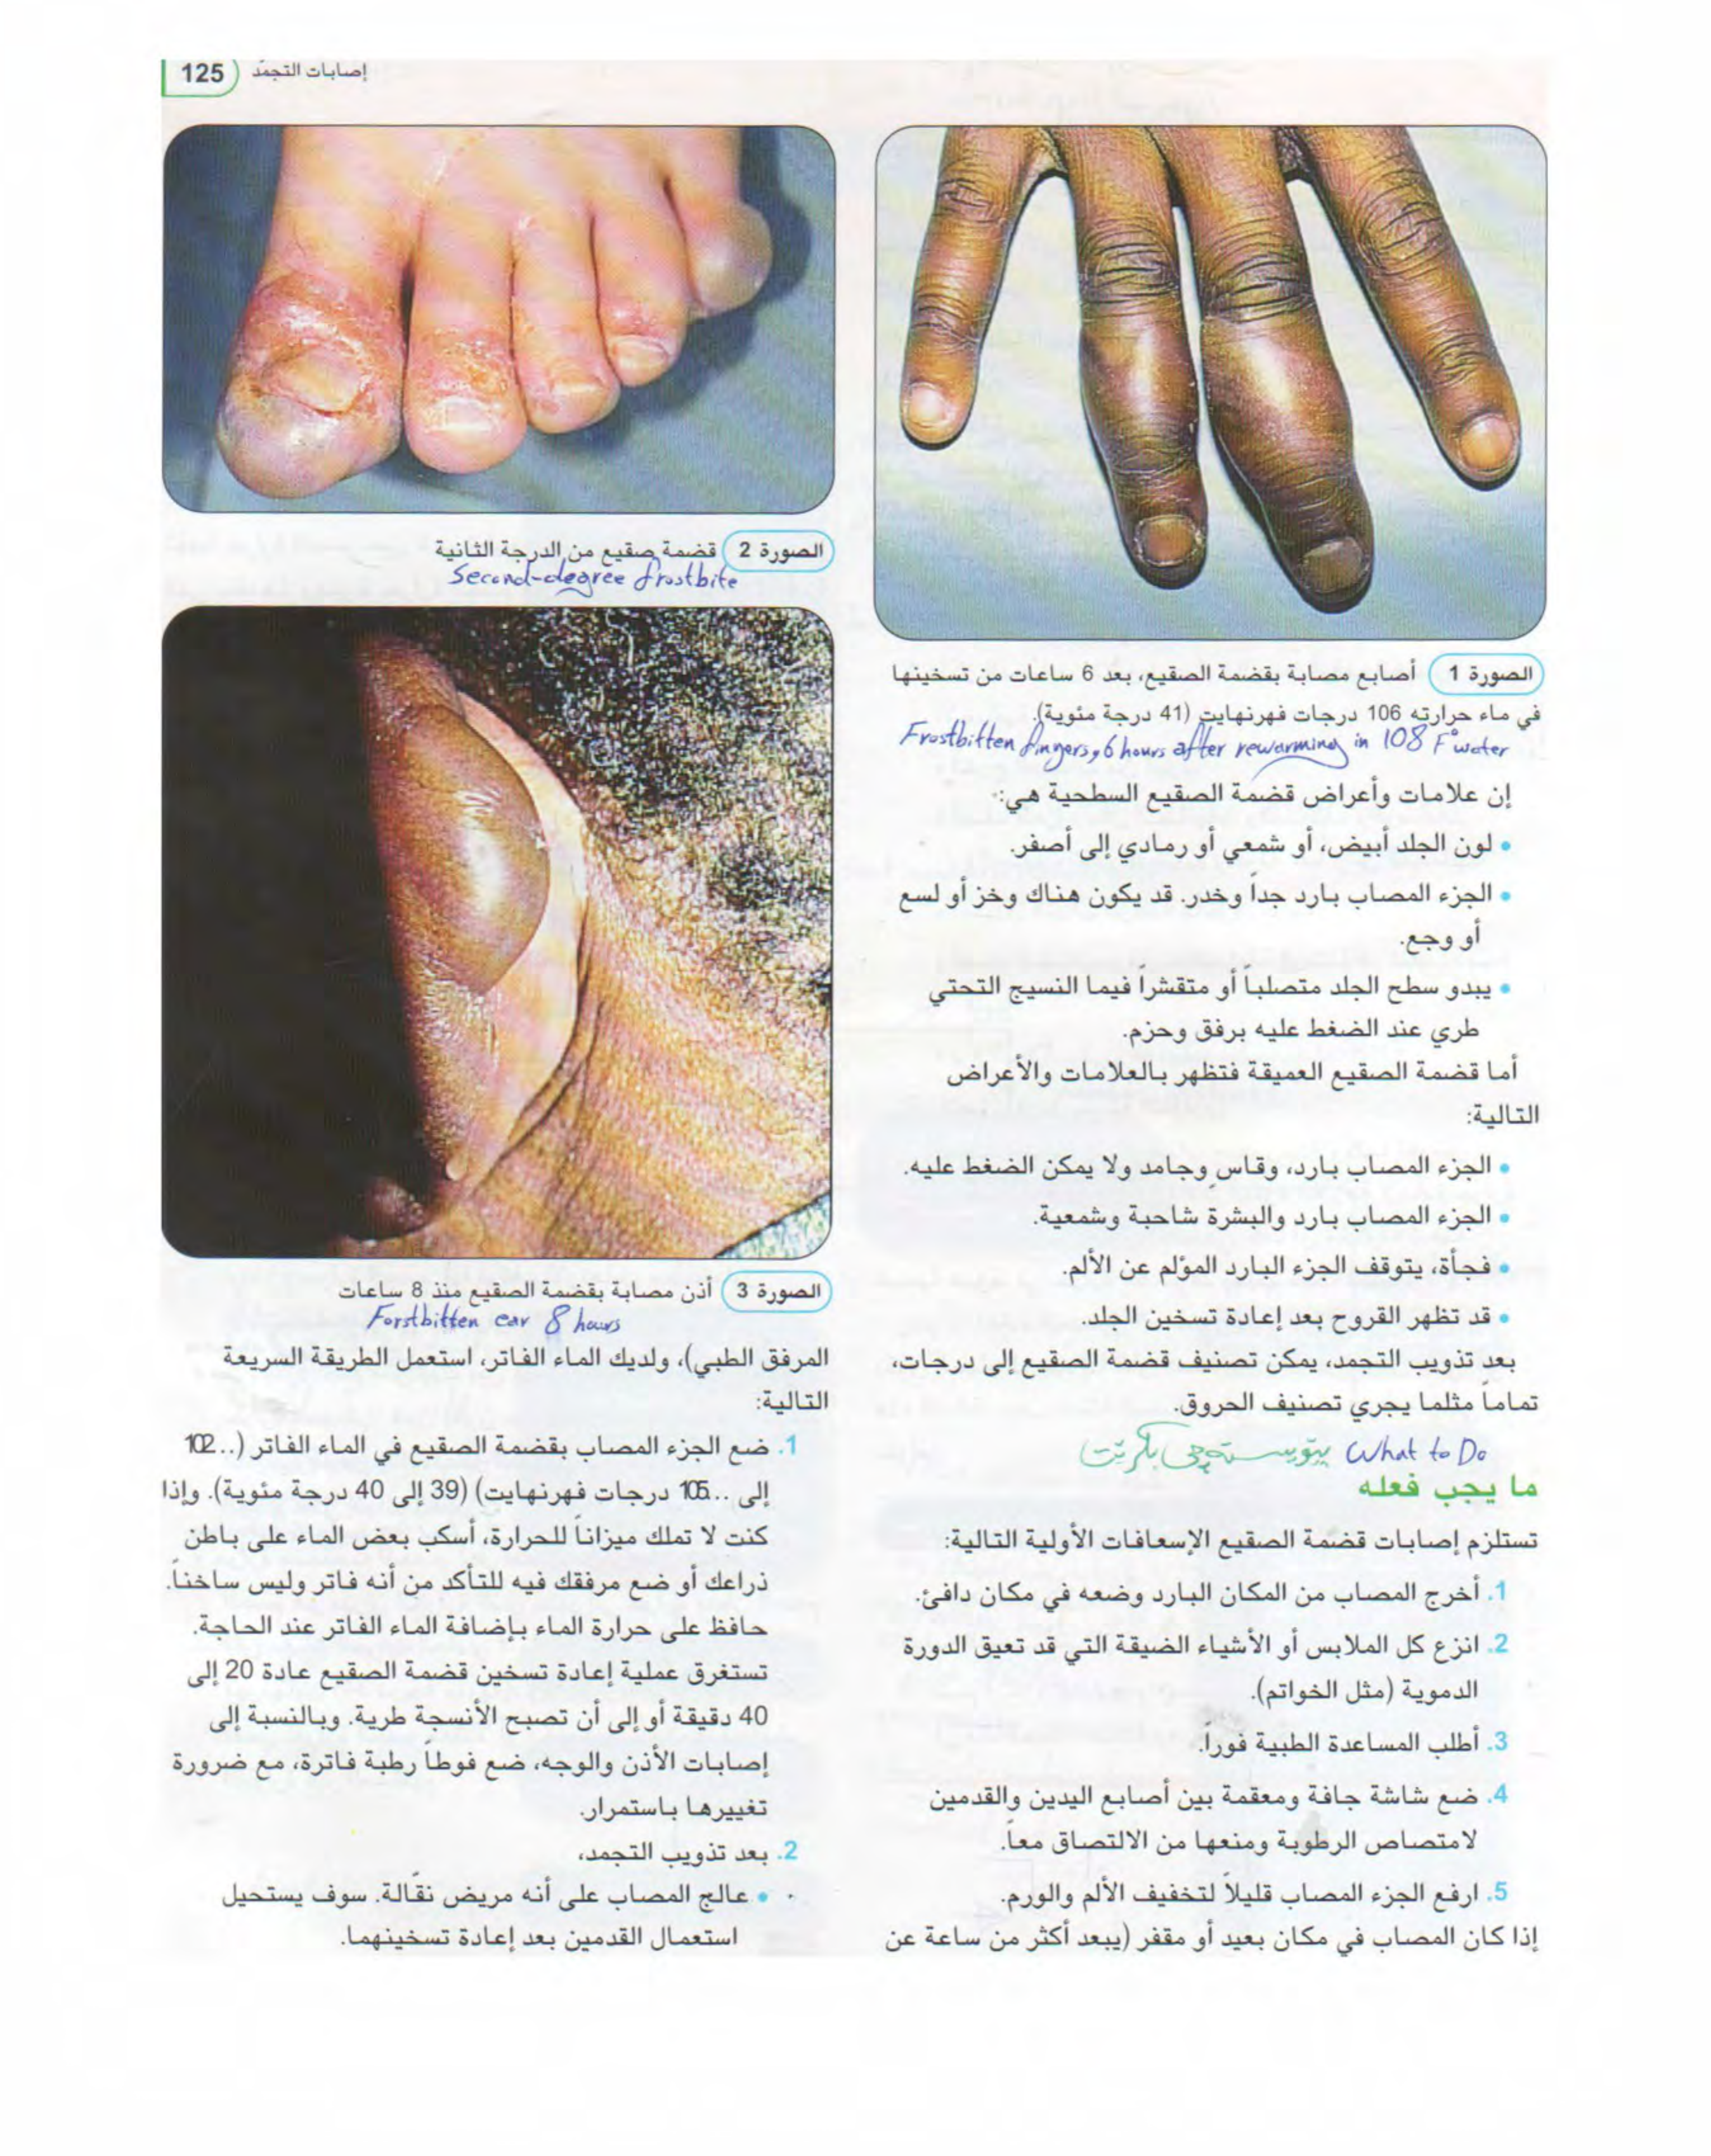 إصابات التجمّد 125
الصورة 1 أصابع مصابة بقضمة الصقيع، بعد 6 ساعات من تسخينها
في ماء حرارته 106 درجات فهرنهايت (41 درجة مئوية).
Frostbitten fingers, 6 hours after rewarming in 108 F° water
إن علامات وأعراض قضمة الصقيع السطحية هي:
• لون الجلد أبيض، أو شمعي أو رمادي إلى أصفر.
• الجزء المصاب بارد جداً وخدر. قد يكون هناك وخز أو لسع
أو وجع.
• يبدو سطح الجلد متصلباً أو متقشراً فيما النسيج التحتي
طري عند الضغط عليه برفق وحزم.
أما قضمة الصقيع العميقة فتظهر بالعلامات والأعراض
التالية:
• الجزء المصاب بارد، وقاسٍ وجامد ولا يمكن الضغط عليه.
• الجزء المصاب بارد والبشرة شاحبة وشمعية.
• فجأة، يتوقف الجزء البارد المؤلم عن الألم.
• قد تظهر القروح بعد إعادة تسخين الجلد.
بعد تذويب التجمد، يمكن تصنيف قضمة الصقيع إلى درجات،
تماماً مثلما يجري تصنيف الحروق.
What to Do
ما يجب فعله
تستلزم إصابات قضمة الصقيع الإسعافات الأولية التالية:
1. أخرج المصاب من المكان البارد وضعه في مكان دافئ.
2. انزع كل الملابس أو الأشياء الضيقة التي قد تعيق الدورة
الدموية (مثل الخواتم).
3. أطلب المساعدة الطبية فوراً.
4. ضع شاشة جافة ومعقمة بين أصابع اليدين والقدمين
لامتصاص الرطوبة ومنعها من الالتصاق معاً.
5. ارفع الجزء المصاب قليلاً لتخفيف الألم والورم.
إذا كان المصاب في مكان بعيد أو مقفر (يبعد أكثر من ساعة عن
الصورة 2 قضمة صقيع من الدرجة الثانية
Second-degree frostbite
الصورة 3 أذن مصابة بقضمة الصقيع منذ 8 ساعات
Forstbitten ear 8 hours
المرفق الطبي)، ولديك الماء الفاتر، استعمل الطريقة السريعة
التالية:
1. ضع الجزء المصاب بقضمة الصقيع في الماء الفاتر (..102
إلى ..105 درجات فهرنهايت) (39 إلى 40 درجة مئوية). وإذا
كنت لا تملك ميزاناً للحرارة، أسكب بعض الماء على باطن
ذراعك أو ضع مرفقك فيه للتأكد من أنه فاتر وليس ساخناً.
حافظ على حرارة الماء بإضافة الماء الفاتر عند الحاجة.
تستغرق عملية إعادة تسخين قضمة الصقيع عادة 20 إلى
40 دقيقة أو إلى أن تصبح الأنسجة طرية. وبالنسبة إلى
إصابات الأذن والوجه، ضع فوطاً رطبة فاترة، مع ضرورة
تغييرها باستمرار.
2. بعد تذويب التجمد،
• عالج المصاب على أنه مريض نقّالة. سوف يستحيل
استعمال القدمين بعد إعادة تسخينهما.